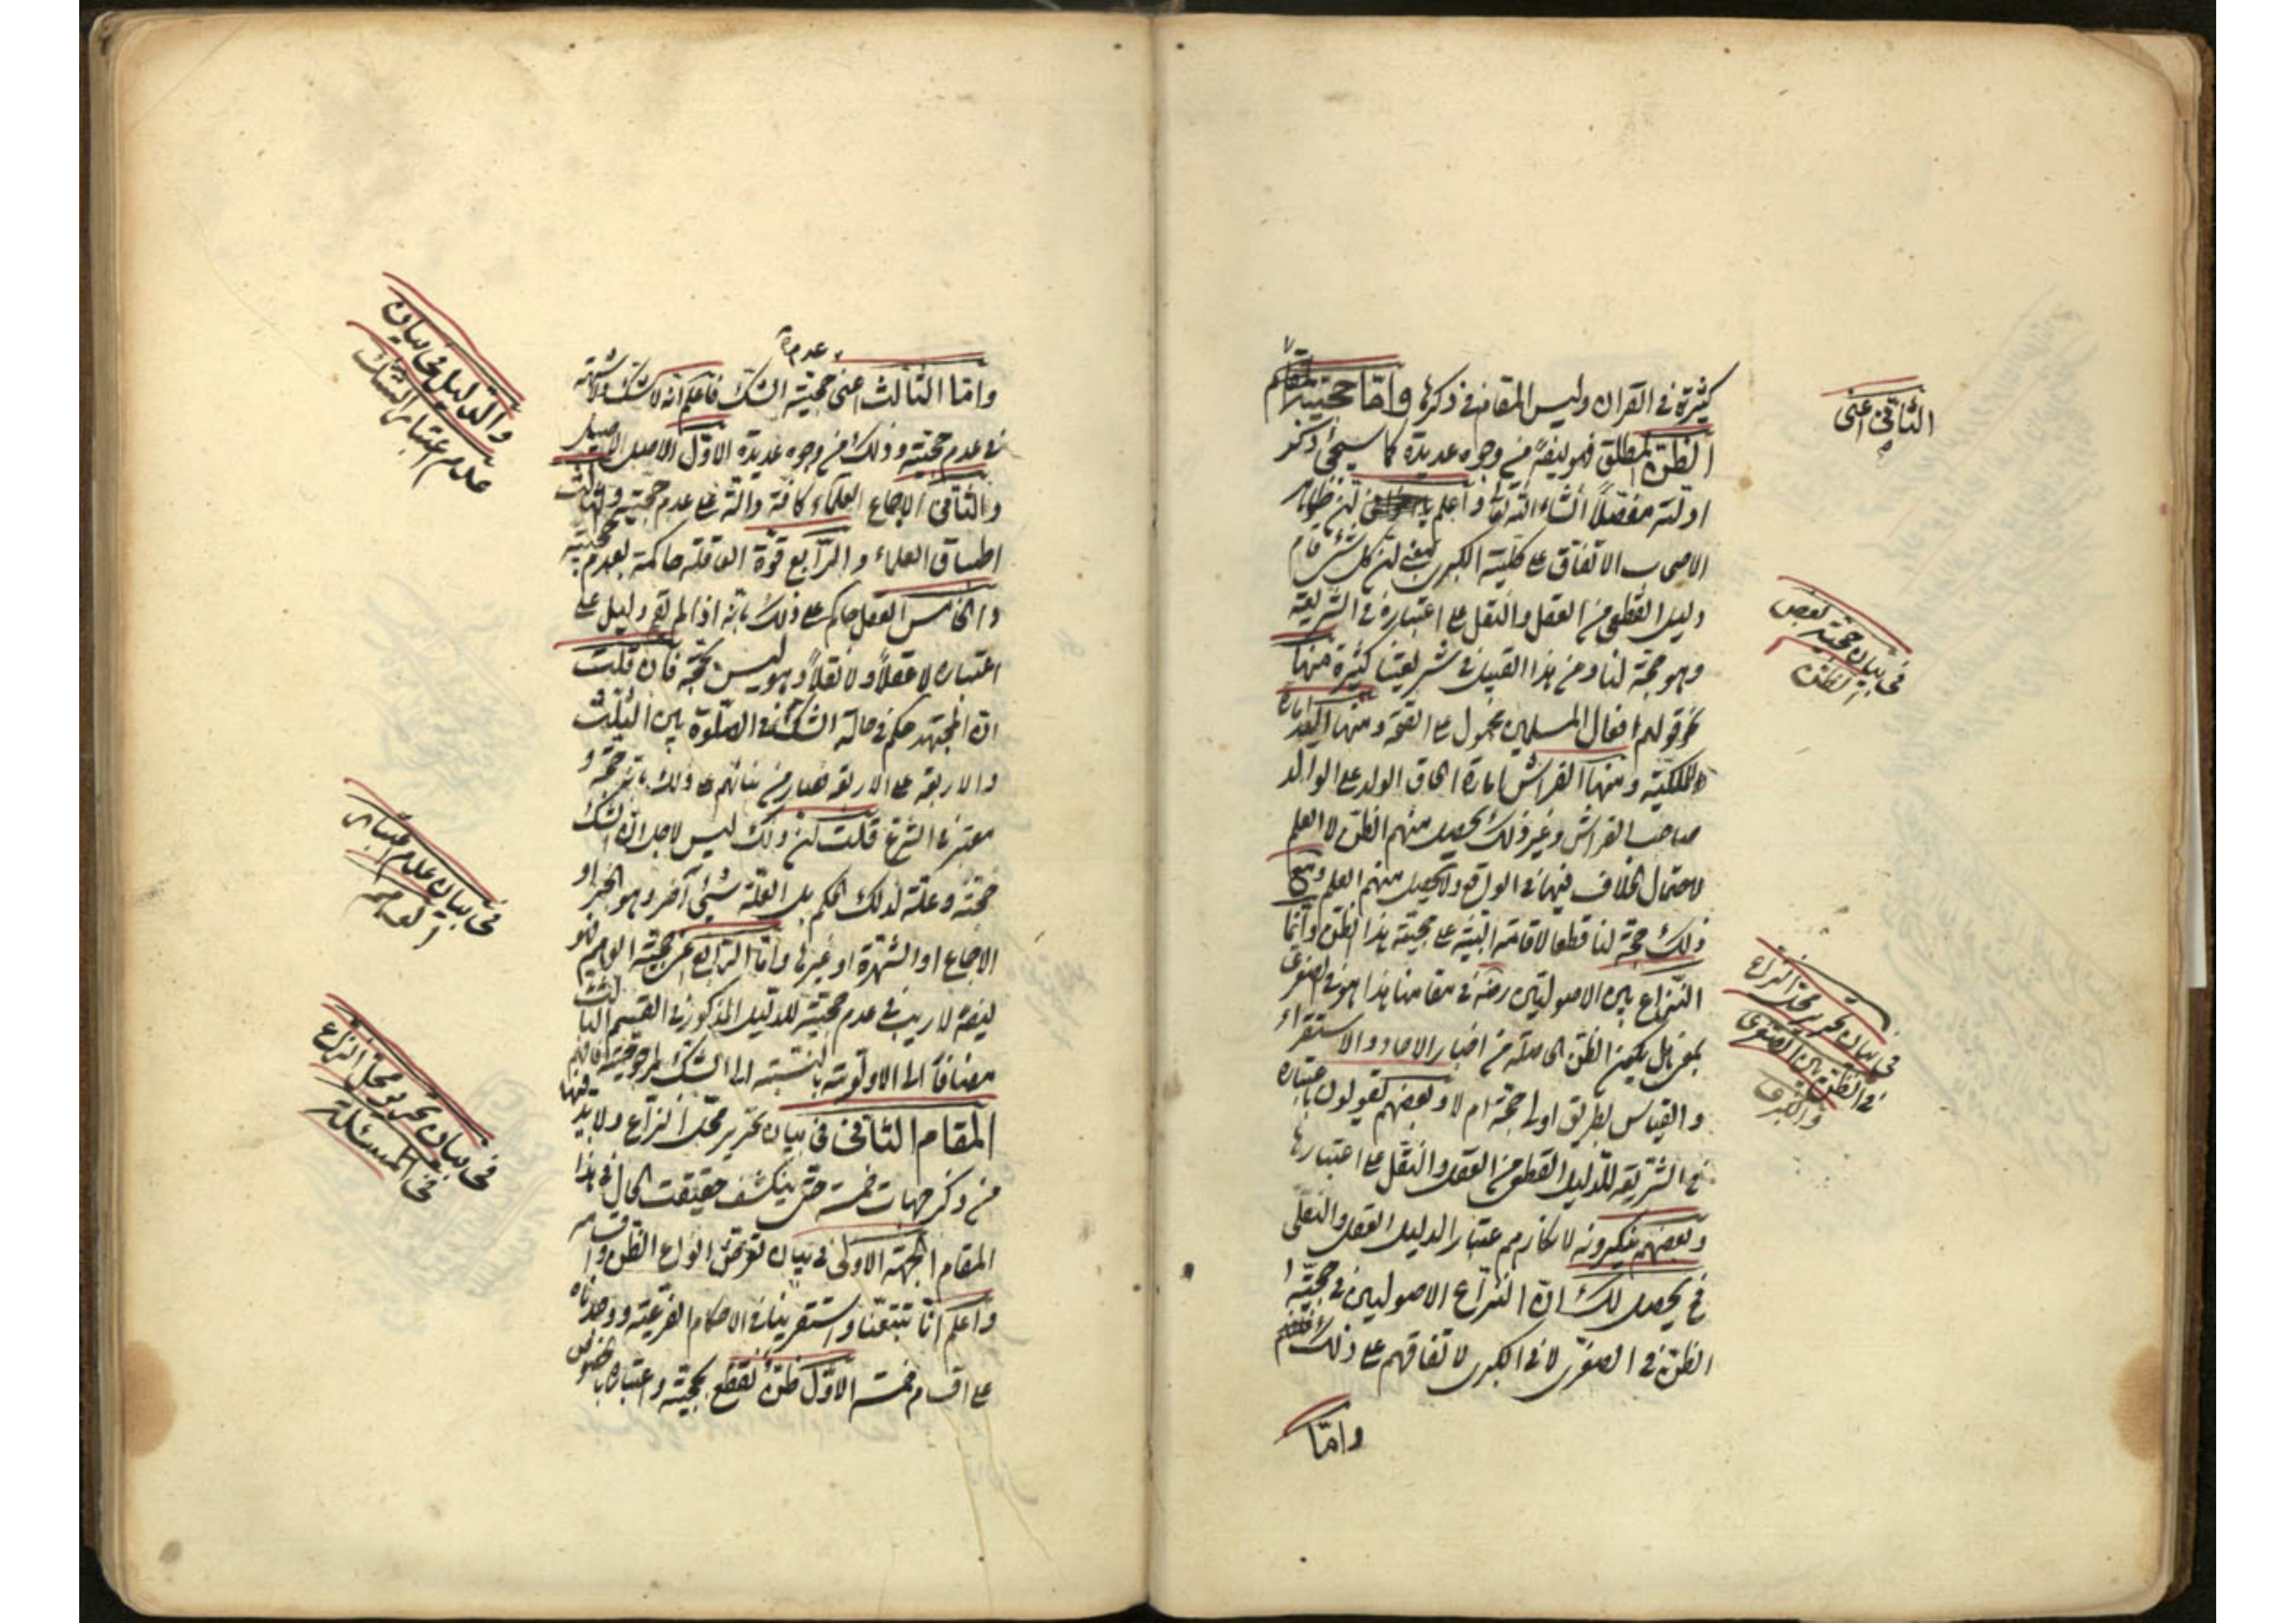 كثيرة في القران وليس المقام في ذكرها واما حجية
الظن المطلق فهو ايضا من وجوه عديدة كما سيجئ ذكر
ادلته مفصلا انشاء الله تعا واعلم ان ظاهر
الاصحاب الاتفاق على كلية الكبرى يعني ان كل شئ قام
دليل القطعي من العقل والنقل على اعتباره في الشريعة
وهو حجة لنا ومن هذا القبيل في شريعتنا كثيرة منها
نحو قولهم افعال المسلمين محمول على الصحة ومنها اليد امارة
الملكية ومنها الفراش امارة الحاق الولد على الوالد
صاحب الفراش وغير ذلك يحصل منهم الظن لا العلم
لاحتمال الخلاف فيها في الواقع ولا يحصل منهم العلم ومع
ذلك حجة لنا قطعا لاقامة البينة على حجية هذا الظن وانما
النزاع بين الاصوليين رضه في مقامنا هذا هو في الصغرى
بمعنى هل يكون الظن الحاصلة من اخبار الاحاد والاستقراء
والقياس بطريق اولى حجة ام لا وبعضهم يقولون باعتباره
في الشريعة للدليل القطعي من العقل والنقل على اعتبارها
وبعضهم ينكرونه لانكارهم اعتبار الدليل العقل والنقلي
فح يحصل لك ان النزاع الاصوليين في حجية
الظن في الصغرى لا في الكبرى لاتفاقهم على ذلك
واما
الثاني اعني
في بيان حجية بعض
الظن
في بيان تحرير محل النزاع
في الظن بين الصغرى
والكبرى
عدم
واما الثالث اعني حجية الشك فاعلم انه لا شك ولا شبهة
في عدم حجيته وذلك من وجوه عديدة الاول الاصل الاصيل
والثاني الاجماع العلماء كافة دالة على عدم حجيته والثالث
اطباق العلماء والرابع قوة العاقلة حاكمة بعدم حجيته
والخامس العقل حاكم على ذلك بانه اذا لم يقم دليل على
اعتباره لا عقلا ولا نقلا وهو ليس بحجة فان قلت
ان المجتهد حكم في حالة الشك في الصلوة بين الثلث
والاربعة على الاربعة فصار من بنائهم على ذلك بانه حجة و
معتبر في الشرع قلت لكن ذلك ليس لاجل ان الشك
حجة وعلة لذلك الحكم بل العلة شئ آخر وهو الخبر او
الاجماع او الشهرة او غيرها واما الرابع اعني حجية الوهم فهو
ايضا لا ريب في عدم حجيته للدليل المذكور في القسم الثالث
مضافا الى الاولوية بالنسبة الى الشك لمرجوحيته فافهم
المقام الثاني في بيان تحرير محل النزاع ولا بد فيها
من ذكر جهات خمسة حتى ينكشف حقيقت الحال في هذا
المقام الجهة الاولى في بيان انواع الظن واقسامه
واعلم انا تتبعنا واستقرينا في الاحكام الفرعية ووجدناه
على اقسام خمسة الاول ظن نقطع بحجيته واعتباره بالخصوص
والدليل في بيان
عدم اعتبار الشك
في بيان عدم اعتبار
الوهم
في بيان تحرير محل النزاع
في المسئلة